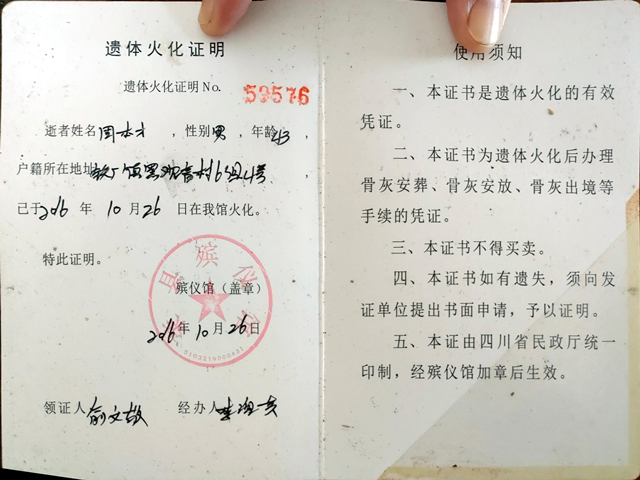 遗体火化证明
遗体火化证明No. 59576
逝者姓名 周本才，性别男，年龄43，
户籍所在地址 镇黑观音村6组4号
已于2016年10月26日在我馆火化。
特此证明。
殡仪馆（盖章）
2016年10月26日
5103210000431
领证人俞文敏 经办人
使用须知
一、本证书是遗体火化的有效
凭证。
二、本证书为遗体火化后办理
骨灰安葬、骨灰安放、骨灰出境等
手续的凭证。
三、本证书不得买卖。
四、本证书如有遗失，须向发
证单位提出书面申请，予以证明。
五、本证由四川省民政厅统一
印制，经殡仪馆加章后生效。